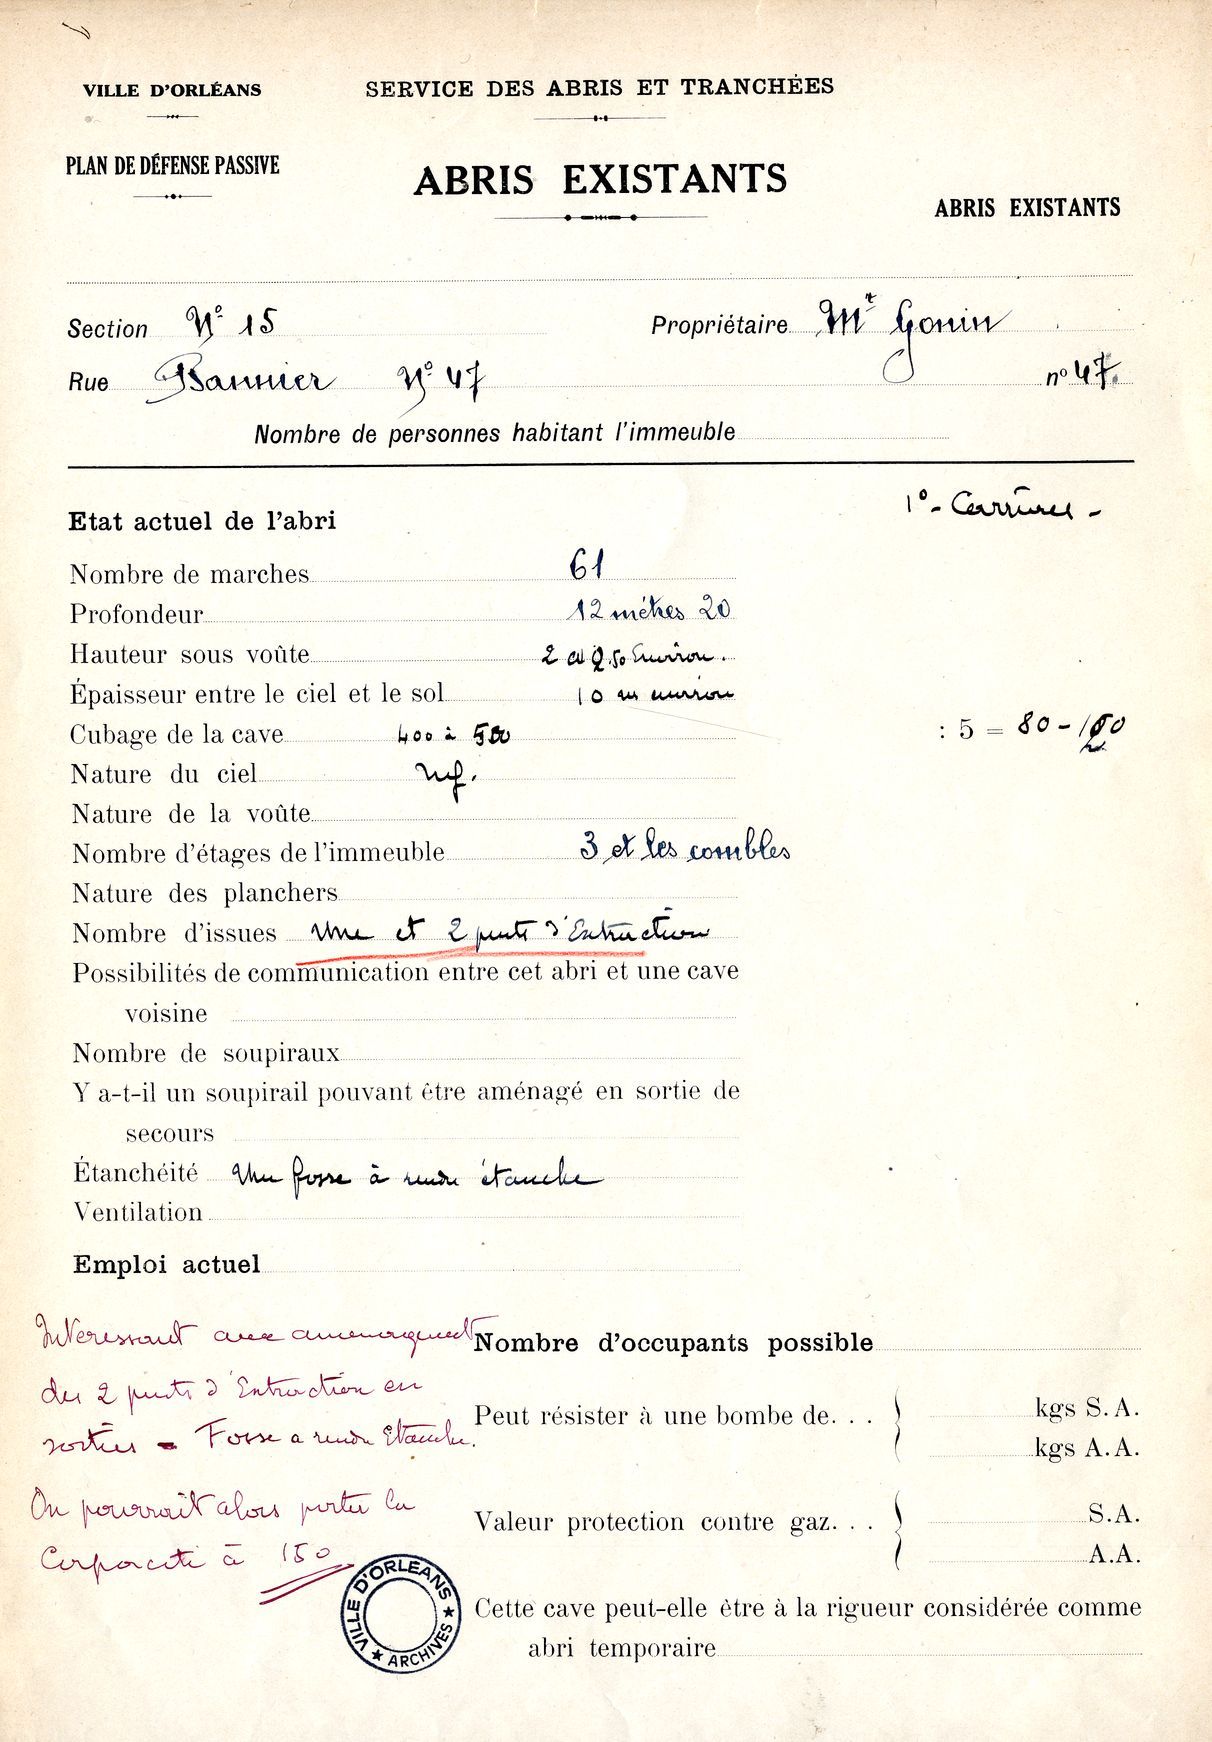 VILLE D'ORLÉANS
SERVICE DES ABRIS ET TRANCHÉES
PLAN DE DÉFENSE PASSIVE
ABRIS EXISTANTS
ABRIS EXISTANTS
Section N° 15 Propriétaire Mr Gonin
Rue Bannier N° 47 n° 47
Nombre de personnes habitant l'immeuble
1° - Carrières -
Etat actuel de l'abri
Nombre de marches 61
Profondeur 12 mètres 20
Hauteur sous voûte 2 à 2.50 Environ.
Épaisseur entre le ciel et le sol 10 m environ
Cubage de la cave 400 à 500 : 5 = 80 -
Nature du ciel
Nature de la voûte
Nombre d'étages de l'immeuble 3 et les combles
Nature des planchers
Nombre d'issues Une et 2 puits d'Extraction
Possibilités de communication entre cet abri et une cave
voisine
Nombre de soupiraux
Y a-t-il un soupirail pouvant être aménagé en sortie de
secours
Étanchéité Une fosse à rendre étanche
Ventilation
Emploi actuel
Intéressant avec aménagement
des 2 puits d'Extraction en
sorties - Fosse a rendre Etanche.
On pourrait alors porter la
Capacité à 150
Nombre d'occupants possible
Peut résister à une bombe de. . . kgs S. A.
kgs A. A.
Valeur protection contre gaz. . . S.A.
A.A.
Cette cave peut-elle être à la rigueur considérée comme
abri temporaire
VILLE D'ORLEANS ★ ARCHIVES ★